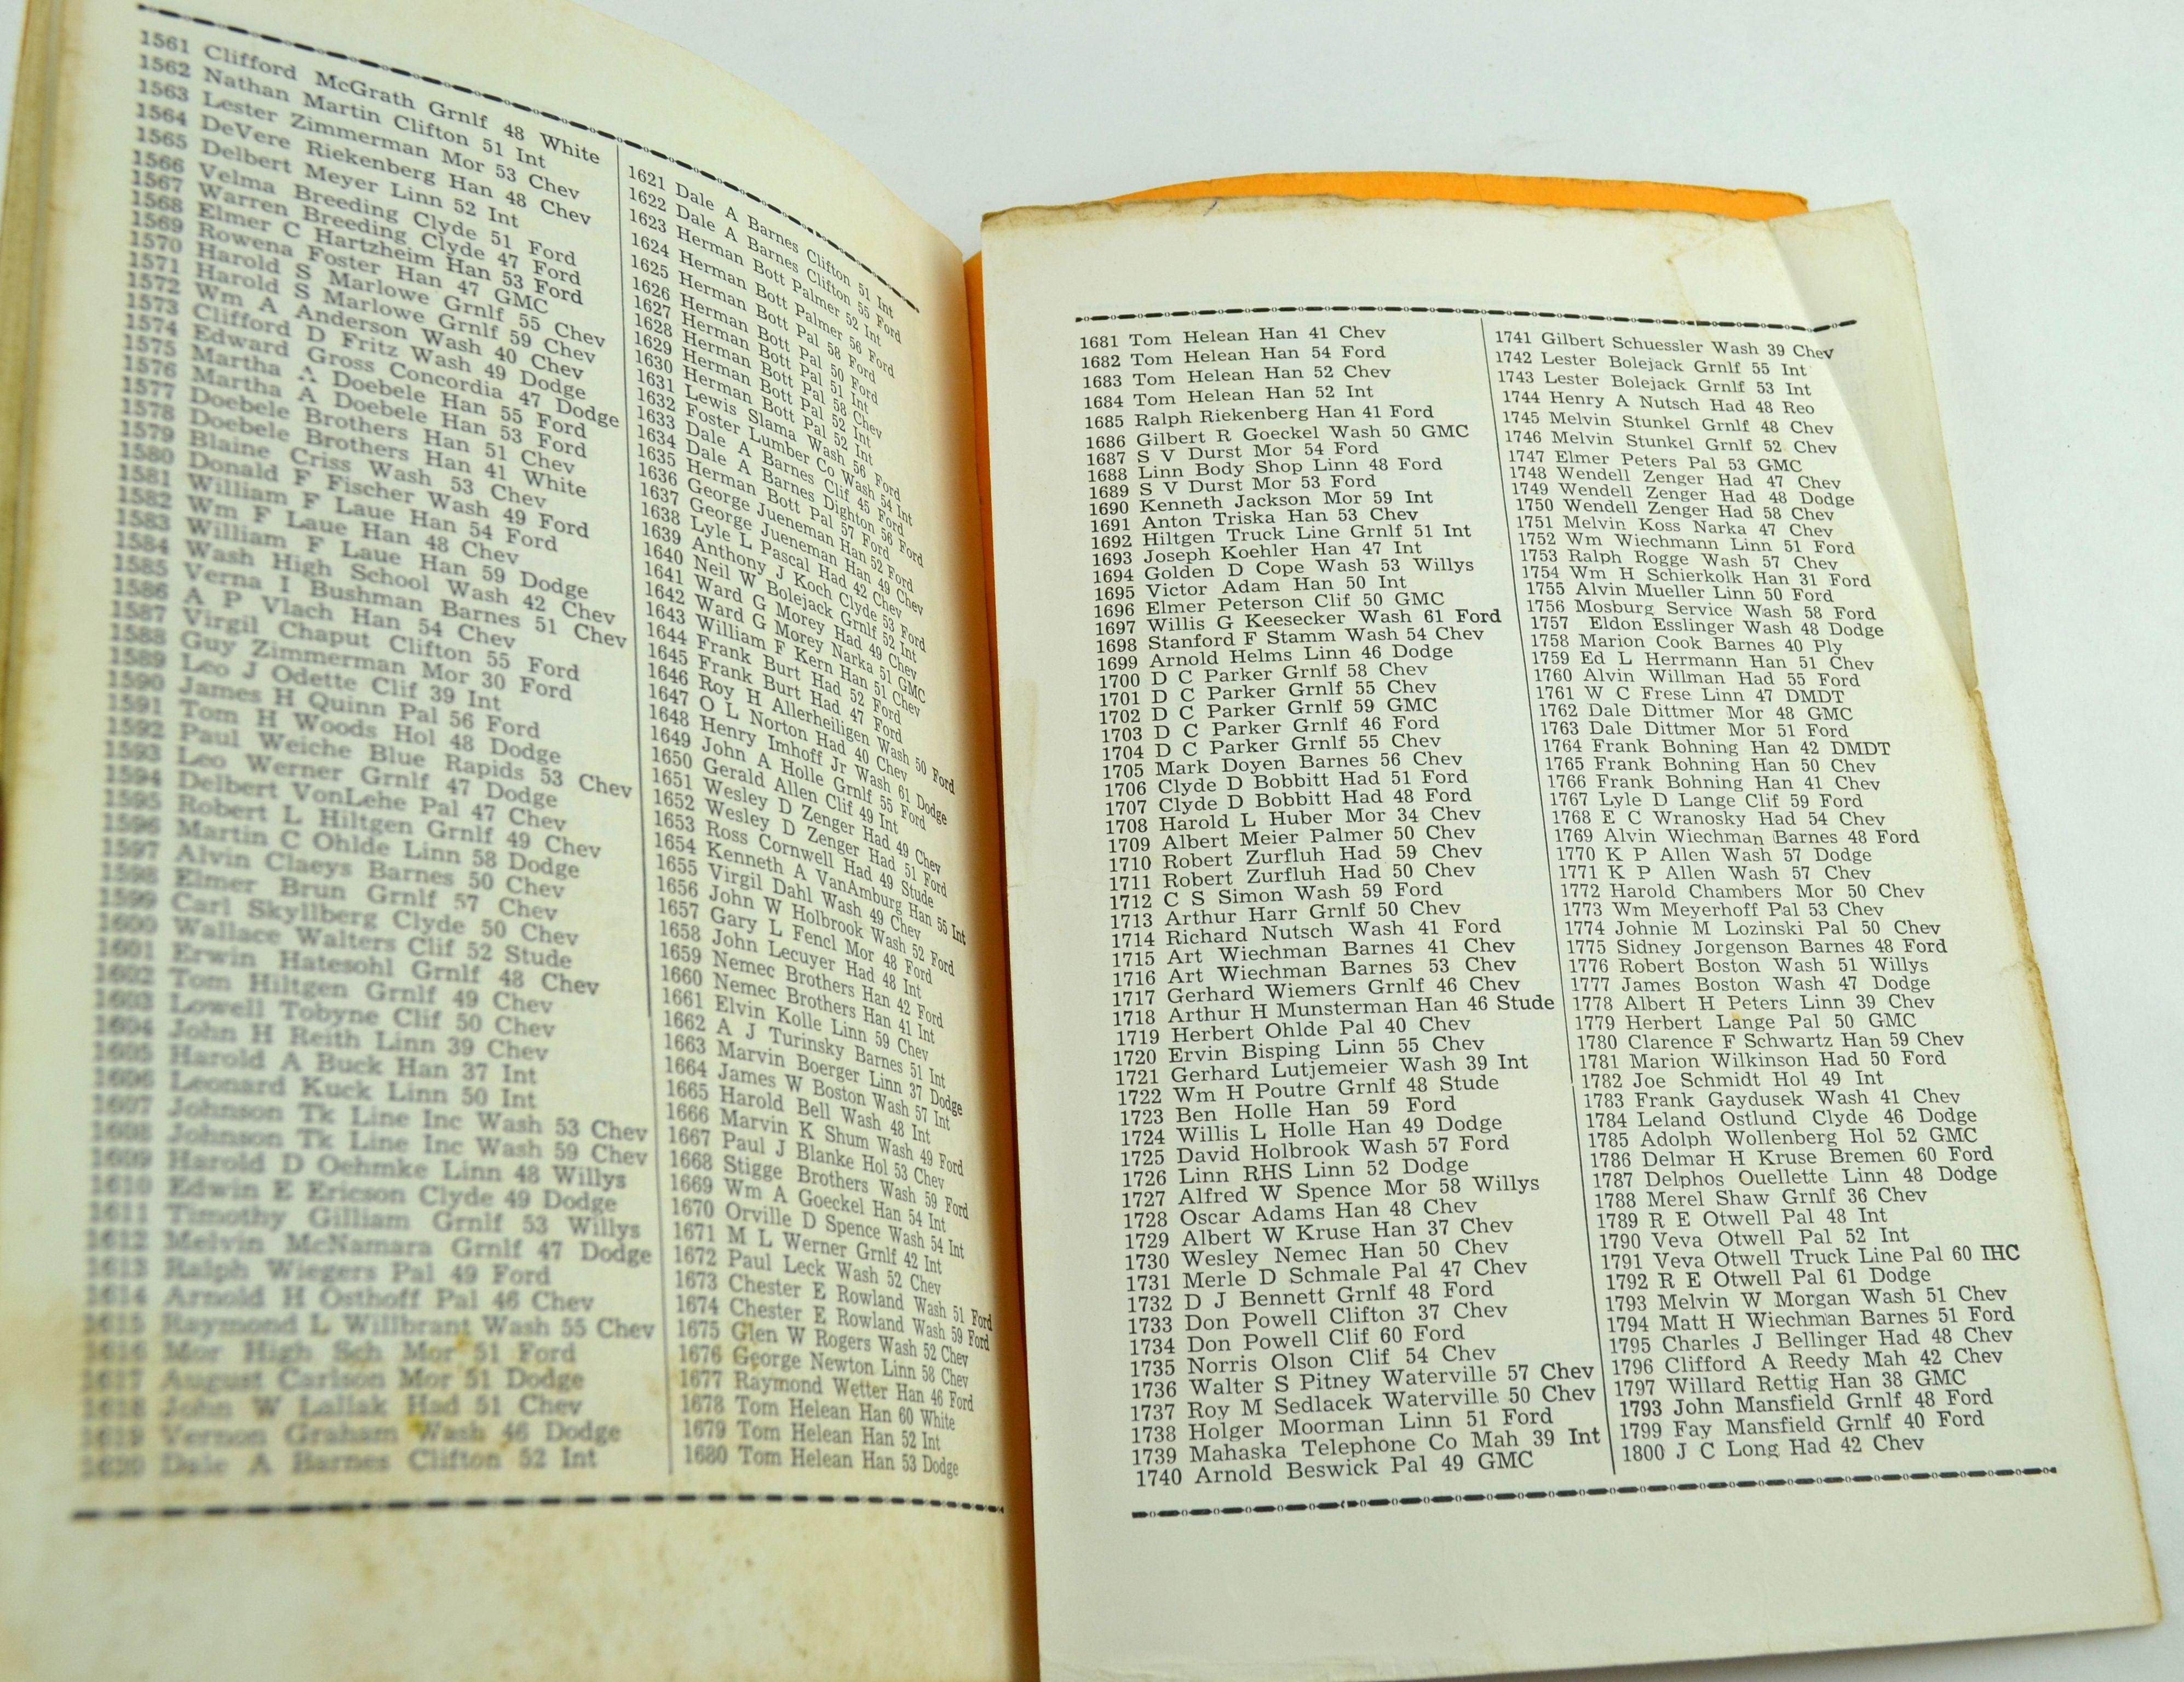 1561 Clifford McGrath Grnlf 48 White
1562 Nathan Martin Clifton 51 Int
1563 Lester Zimmerman Mor 53 Chev
1564 DeVere Riekenberg Han 48 Chev
1565 Delbert Meyer Linn 52 Int
1566 Velma Breeding Clyde 51 Ford
1567 Warren Breeding Clyde 47 Ford
1568 Elmer C Hartzheim Han 53 Ford
1569 Rowena Foster Han 47 GMC
1570 Harold S Marlowe Grnlf 55 Chev
1571 Harold S Marlowe Grnlf 59 Chev
1572 Wm A Anderson Wash 40 Chev
1573 Clifford D Fritz Wash 49 Dodge
1574 Edward Gross Concordia 47 Dodge
1575 Martha A Doebele Han 55 Ford
1576 Martha A Doebele Han 53 Ford
1577 Doebele Brothers Han 51 Chev
1578 Doebele Brothers Han 41 White
1579 Blaine Criss Wash 53 Chev
1580 Donald F Fischer Wash 49 Ford
1581 William F Laue Han 54 Ford
1582 Wm F Laue Han 48 Chev
1583 William F Laue Han 59 Dodge
1584 Wash High School Wash 42 Chev
1585 Verna I Bushman Barnes 51 Chev
1586 A P Vlach Han 54 Chev
1587 Virgil Chaput Clifton 55 Ford
1588 Guy Zimmerman Mor 30 Ford
1589 Leo J Odette Clif 39 Int
1590 James H Quinn Pal 56 Ford
1591 Tom H Woods Hol 48 Dodge
1592 Paul Weiche Blue Rapids 53 Chev
1593 Leo Werner Grnlf 47 Dodge
1594 Delbert VonLehe Pal 47 Chev
1595 Robert L Hiltgen Grnlf 49 Chev
1596 Martin C Ohlde Linn 58 Dodge
1597 Alvin Claeys Barnes 50 Chev
1598 Elmer Brun Grnlf 57 Chev
1599 Carl Skyllberg Clyde 50 Chev
1600 Wallace Walters Clif 52 Stude
1601 Erwin Hatesohl Grnlf 48 Chev
1602 Tom Hiltgen Grnlf 49 Chev
1603 Lowell Tobyne Clif 50 Chev
1604 John H Reith Linn 39 Chev
1605 Harold A Buck Han 37 Int
1606 Leonard Kuck Linn 50 Int
1607 Johnson Tk Line Inc Wash 53 Chev
1608 Johnson Tk Line Inc Wash 59 Chev
1609 Harold D Oehmke Linn 48 Willys
1610 Edwin E Ericson Clyde 49 Dodge
1611 Timothy Gilliam Grnlf 53 Willys
1612 Melvin McNamara Grnlf 47 Dodge
1613 Ralph Wiegers Pal 49 Ford
1614 Arnold H Osthoff Pal 46 Chev
1615 Raymond L Willbrant Wash 55 Chev
1616 Mor High Sch Mor 51 Ford
1617 August Carlson Mor 51 Dodge
1618 John W Lallak Had 51 Chev
1619 Vernon Graham Wash 46 Dodge
1620 Dale A Barnes Clifton 52 Int
1621 Dale A Barnes Clifton 51 Int
1622 Dale A Barnes Clifton 55 Ford
1623 Herman Bott Palmer 52 Int
1624 Herman Bott Palmer 56 Ford
1625 Herman Bott Pal 58 Ford
1626 Herman Bott Pal 50 Ford
1627 Herman Bott Pal 51 Int
1628 Herman Bott Pal 58 Chev
1629 Herman Bott Pal 52 Int
1630 Herman Bott Pal 52 Int
1631 Lewis Slama Wash 56 Ford
1632 Foster Lumber Co Wash 54 Int
1633 Dale A Barnes Clif 45 Ford
1634 Dale A Barnes Dighton 56 Ford
1635 Herman Bott Pal 57 Ford
1636 George Jueneman Han 52 Ford
1637 George Jueneman Han 49 Chev
1638 Lyle L Pascal Had 42 Chev
1639 Anthony J Koch Clyde 53 Ford
1640 Neil W Bolejack Grnlf 52 Int
1641 Ward G Morey Had 49 Chev
1642 Ward G Morey Narka 51 GMC
1643 William F Kern Han 51 Chev
1644 Frank Burt Had 52 Ford
1645 Frank Burt Had 47 Ford
1646 Roy H Allerheiligen Wash 50 Ford
1647 O L Norton Had 40 Chev
1648 Henry Imhoff Jr Wash 61 Dodge
1649 John A Holle Grnlf 55 Ford
1650 Gerald Allen Clif 49 Int
1651 Wesley D Zenger Had 49 Chev
1652 Wesley D Zenger Had 51 Ford
1653 Ross Cornwell Had 49 Stude
1654 Kenneth A VanAmburg Han 55 Int
1655 Virgil Dahl Wash 49 Chev
1656 John W Holbrook Wash 52 Ford
1657 Gary L Fencl Mor 48 Ford
1658 John Lecuyer Had 48 Int
1659 Nemec Brothers Han 42 Ford
1660 Nemec Brothers Han 41 Int
1661 Elvin Kolle Linn 59 Chev
1662 A J Turinsky Barnes 51 Int
1663 Marvin Boerger Linn 37 Dodge
1664 James W Boston Wash 57 Int
1665 Harold Bell Wash 48 Int
1666 Marvin K Shum Wash 49 Ford
1667 Paul J Blanke Hol 53 Chev
1668 Stigge Brothers Wash 59 Ford
1669 Wm A Goeckel Han 54 Int
1670 Orville D Spence Wash 54 Int
1671 M L Werner Grnlf 42 Int
1672 Paul Leck Wash 52 Chev
1673 Chester E Rowland Wash 51 Ford
1674 Chester E Rowland Wash 59 Ford
1675 Glen W Rogers Wash 52 Chev
1676 George Newton Linn 58 Chev
1677 Raymond Wetter Han 46 Ford
1678 Tom Helean Han 60 White
1679 Tom Helean Han 52 Int
1680 Tom Helean Han 53 Dodge
1681 Tom Helean Han 41 Chev
1682 Tom Helean Han 54 Ford
1683 Tom Helean Han 52 Chev
1684 Tom Helean Han 52 Int
1685 Ralph Riekenberg Han 41 Ford
1686 Gilbert R Goeckel Wash 50 GMC
1687 S V Durst Mor 54 Ford
1688 Linn Body Shop Linn 48 Ford
1689 S V Durst Mor 53 Ford
1690 Kenneth Jackson Mor 59 Int
1691 Anton Triska Han 53 Chev
1692 Hiltgen Truck Line Grnlf 51 Int
1693 Joseph Koehler Han 47 Int
1694 Golden D Cope Wash 53 Willys
1695 Victor Adam Han 50 Int
1696 Elmer Peterson Clif 50 GMC
1697 Willis G Keesecker Wash 61 Ford
1698 Stanford F Stamm Wash 54 Chev
1699 Arnold Helms Linn 46 Dodge
1700 D C Parker Grnlf 58 Chev
1701 D C Parker Grnlf 55 Chev
1702 D C Parker Grnlf 59 GMC
1703 D C Parker Grnlf 46 Ford
1704 D C Parker Grnlf 55 Chev
1705 Mark Doyen Barnes 56 Chev
1706 Clyde D Bobbitt Had 51 Ford
1707 Clyde D Bobbitt Had 48 Ford
1708 Harold L Huber Mor 34 Chev
1709 Albert Meier Palmer 50 Chev
1710 Robert Zurfluh Had 59 Chev
1711 Robert Zurfluh Had 50 Chev
1712 C S Simon Wash 59 Ford
1713 Arthur Harr Grnlf 50 Chev
1714 Richard Nutsch Wash 41 Ford
1715 Art Wiechman Barnes 41 Chev
1716 Art Wiechman Barnes 53 Chev
1717 Gerhard Wiemers Grnlf 46 Chev
1718 Arthur H Munsterman Han 46 Stude
1719 Herbert Ohlde Pal 40 Chev
1720 Ervin Bisping Linn 55 Chev
1721 Gerhard Lutjemeier Wash 39 Int
1722 Wm H Poutre Grnlf 48 Stude
1723 Ben Holle Han 59 Ford
1724 Willis L Holle Han 49 Dodge
1725 David Holbrook Wash 57 Ford
1726 Linn RHS Linn 52 Dodge
1727 Alfred W Spence Mor 58 Willys
1728 Oscar Adams Han 48 Chev
1729 Albert W Kruse Han 37 Chev
1730 Wesley Nemec Han 50 Chev
1731 Merle D Schmale Pal 47 Chev
1732 D J Bennett Grnlf 48 Ford
1733 Don Powell Clifton 37 Chev
1734 Don Powell Clif 60 Ford
1735 Norris Olson Clif 54 Chev
1736 Walter S Pitney Waterville 57 Chev
1737 Roy M Sedlacek Waterville 50 Chev
1738 Holger Moorman Linn 51 Ford
1739 Mahaska Telephone Co Mah 39 Int
1740 Arnold Beswick Pal 49 GMC
1741 Gilbert Schuessler Wash 39 Chev
1742 Lester Bolejack Grnlf 55 Int
1743 Lester Bolejack Grnlf 53 Int
1744 Henry A Nutsch Had 48 Reo
1745 Melvin Stunkel Grnlf 48 Chev
1746 Melvin Stunkel Grnlf 52 Chev
1747 Elmer Peters Pal 53 GMC
1748 Wendell Zenger Had 47 Chev
1749 Wendell Zenger Had 48 Dodge
1750 Wendell Zenger Had 58 Chev
1751 Melvin Koss Narka 47 Chev
1752 Wm Wiechmann Linn 51 Ford
1753 Ralph Rogge Wash 57 Chev
1754 Wm H Schierkolk Han 31 Ford
1755 Alvin Mueller Linn 50 Ford
1756 Mosburg Service Wash 58 Ford
1757 Eldon Esslinger Wash 48 Dodge
1758 Marion Cook Barnes 40 Ply
1759 Ed L Herrmann Han 51 Chev
1760 Alvin Willman Had 55 Ford
1761 W C Frese Linn 47 DMDT
1762 Dale Dittmer Mor 48 GMC
1763 Dale Dittmer Mor 51 Ford
1764 Frank Bohning Han 42 DMDT
1765 Frank Bohning Han 50 Chev
1766 Frank Bohning Han 41 Chev
1767 Lyle D Lange Clif 59 Ford
1768 E C Wranosky Had 54 Chev
1769 Alvin Wiechman Barnes 48 Ford
1770 K P Allen Wash 57 Dodge
1771 K P Allen Wash 57 Chev
1772 Harold Chambers Mor 50 Chev
1773 Wm Meyerhoff Pal 53 Chev
1774 Johnie M Lozinski Pal 50 Chev
1775 Sidney Jorgenson Barnes 48 Ford
1776 Robert Boston Wash 51 Willys
1777 James Boston Wash 47 Dodge
1778 Albert H Peters Linn 39 Chev
1779 Herbert Lange Pal 50 GMC
1780 Clarence F Schwartz Han 59 Chev
1781 Marion Wilkinson Had 50 Ford
1782 Joe Schmidt Hol 49 Int
1783 Frank Gaydusek Wash 41 Chev
1784 Leland Ostlund Clyde 46 Dodge
1785 Adolph Wollenberg Hol 52 GMC
1786 Delmar H Kruse Bremen 60 Ford
1787 Delphos Ouellette Linn 48 Dodge
1788 Merel Shaw Grnlf 36 Chev
1789 R E Otwell Pal 48 Int
1790 Veva Otwell Pal 52 Int
1791 Veva Otwell Truck Line Pal 60 IHC
1792 R E Otwell Pal 61 Dodge
1793 Melvin W Morgan Wash 51 Chev
1794 Matt H Wiechman Barnes 51 Ford
1795 Charles J Bellinger Had 48 Chev
1796 Clifford A Reedy Mah 42 Chev
1797 Willard Rettig Han 38 GMC
1793 John Mansfield Grnlf 48 Ford
1799 Fay Mansfield Grnlf 40 Ford
1800 J C Long Had 42 Chev